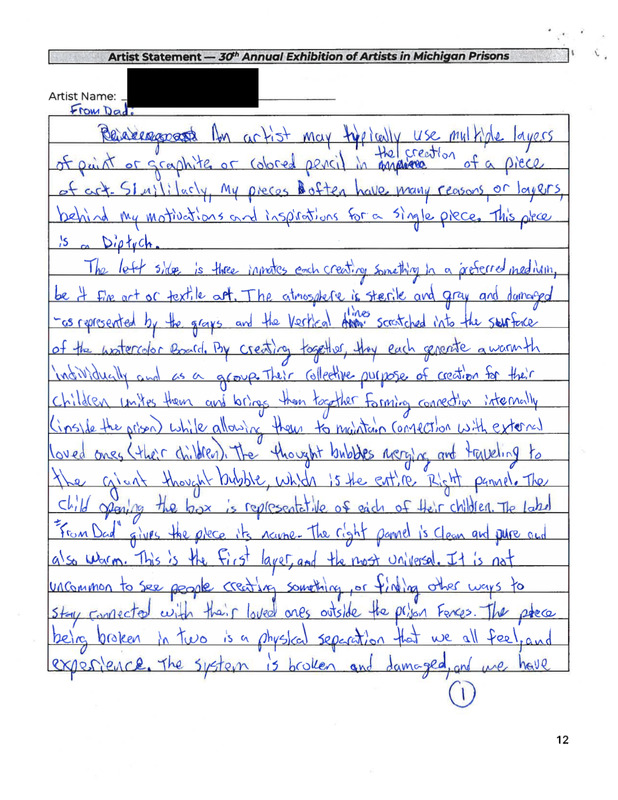 Artist Statement — 30th Annual Exhibition of Artists in Michigan Prisons
Artist Name:
From Dad.
An artist may typically use multiple layers
of paint or graphite or colored pencil in the creation of a piece
of art. Simililarly, my pieces often have many reasons, or layers,
behind my motivations and inspirations for a single piece. This piece
is a Diptych.
The left side is three inmates each creating something in a preferred medium,
be it fine art or textile art. The atmosphere is sterile and gray and damaged
-as represented by the grays and the vertical lines scratched into the surface
of the watercolor Board. By creating together, they each generate a warmth
individually and as a group. Their collective purpose of creation for their
children unites them and brings them together forming connection internally
(inside the prison) while allowing them to maintain connection with external
loved ones (their children). The thought bubbles merging and traveling to
the giant thought bubble, which is the entire Right pannel. The
child opening the box is representative of each of their children. The label
"From Dad" gives the piece its name. The right pannel is clean and pure and
also warm. This is the first layer, and the most universal. It is not
uncommon to see people creating something, or finding other ways to
stay connected with their loved ones outside the prison fences. The piece
being broken in two is a physical separation that we all feel, and
experience. The system is broken and damaged, and we have
1
12